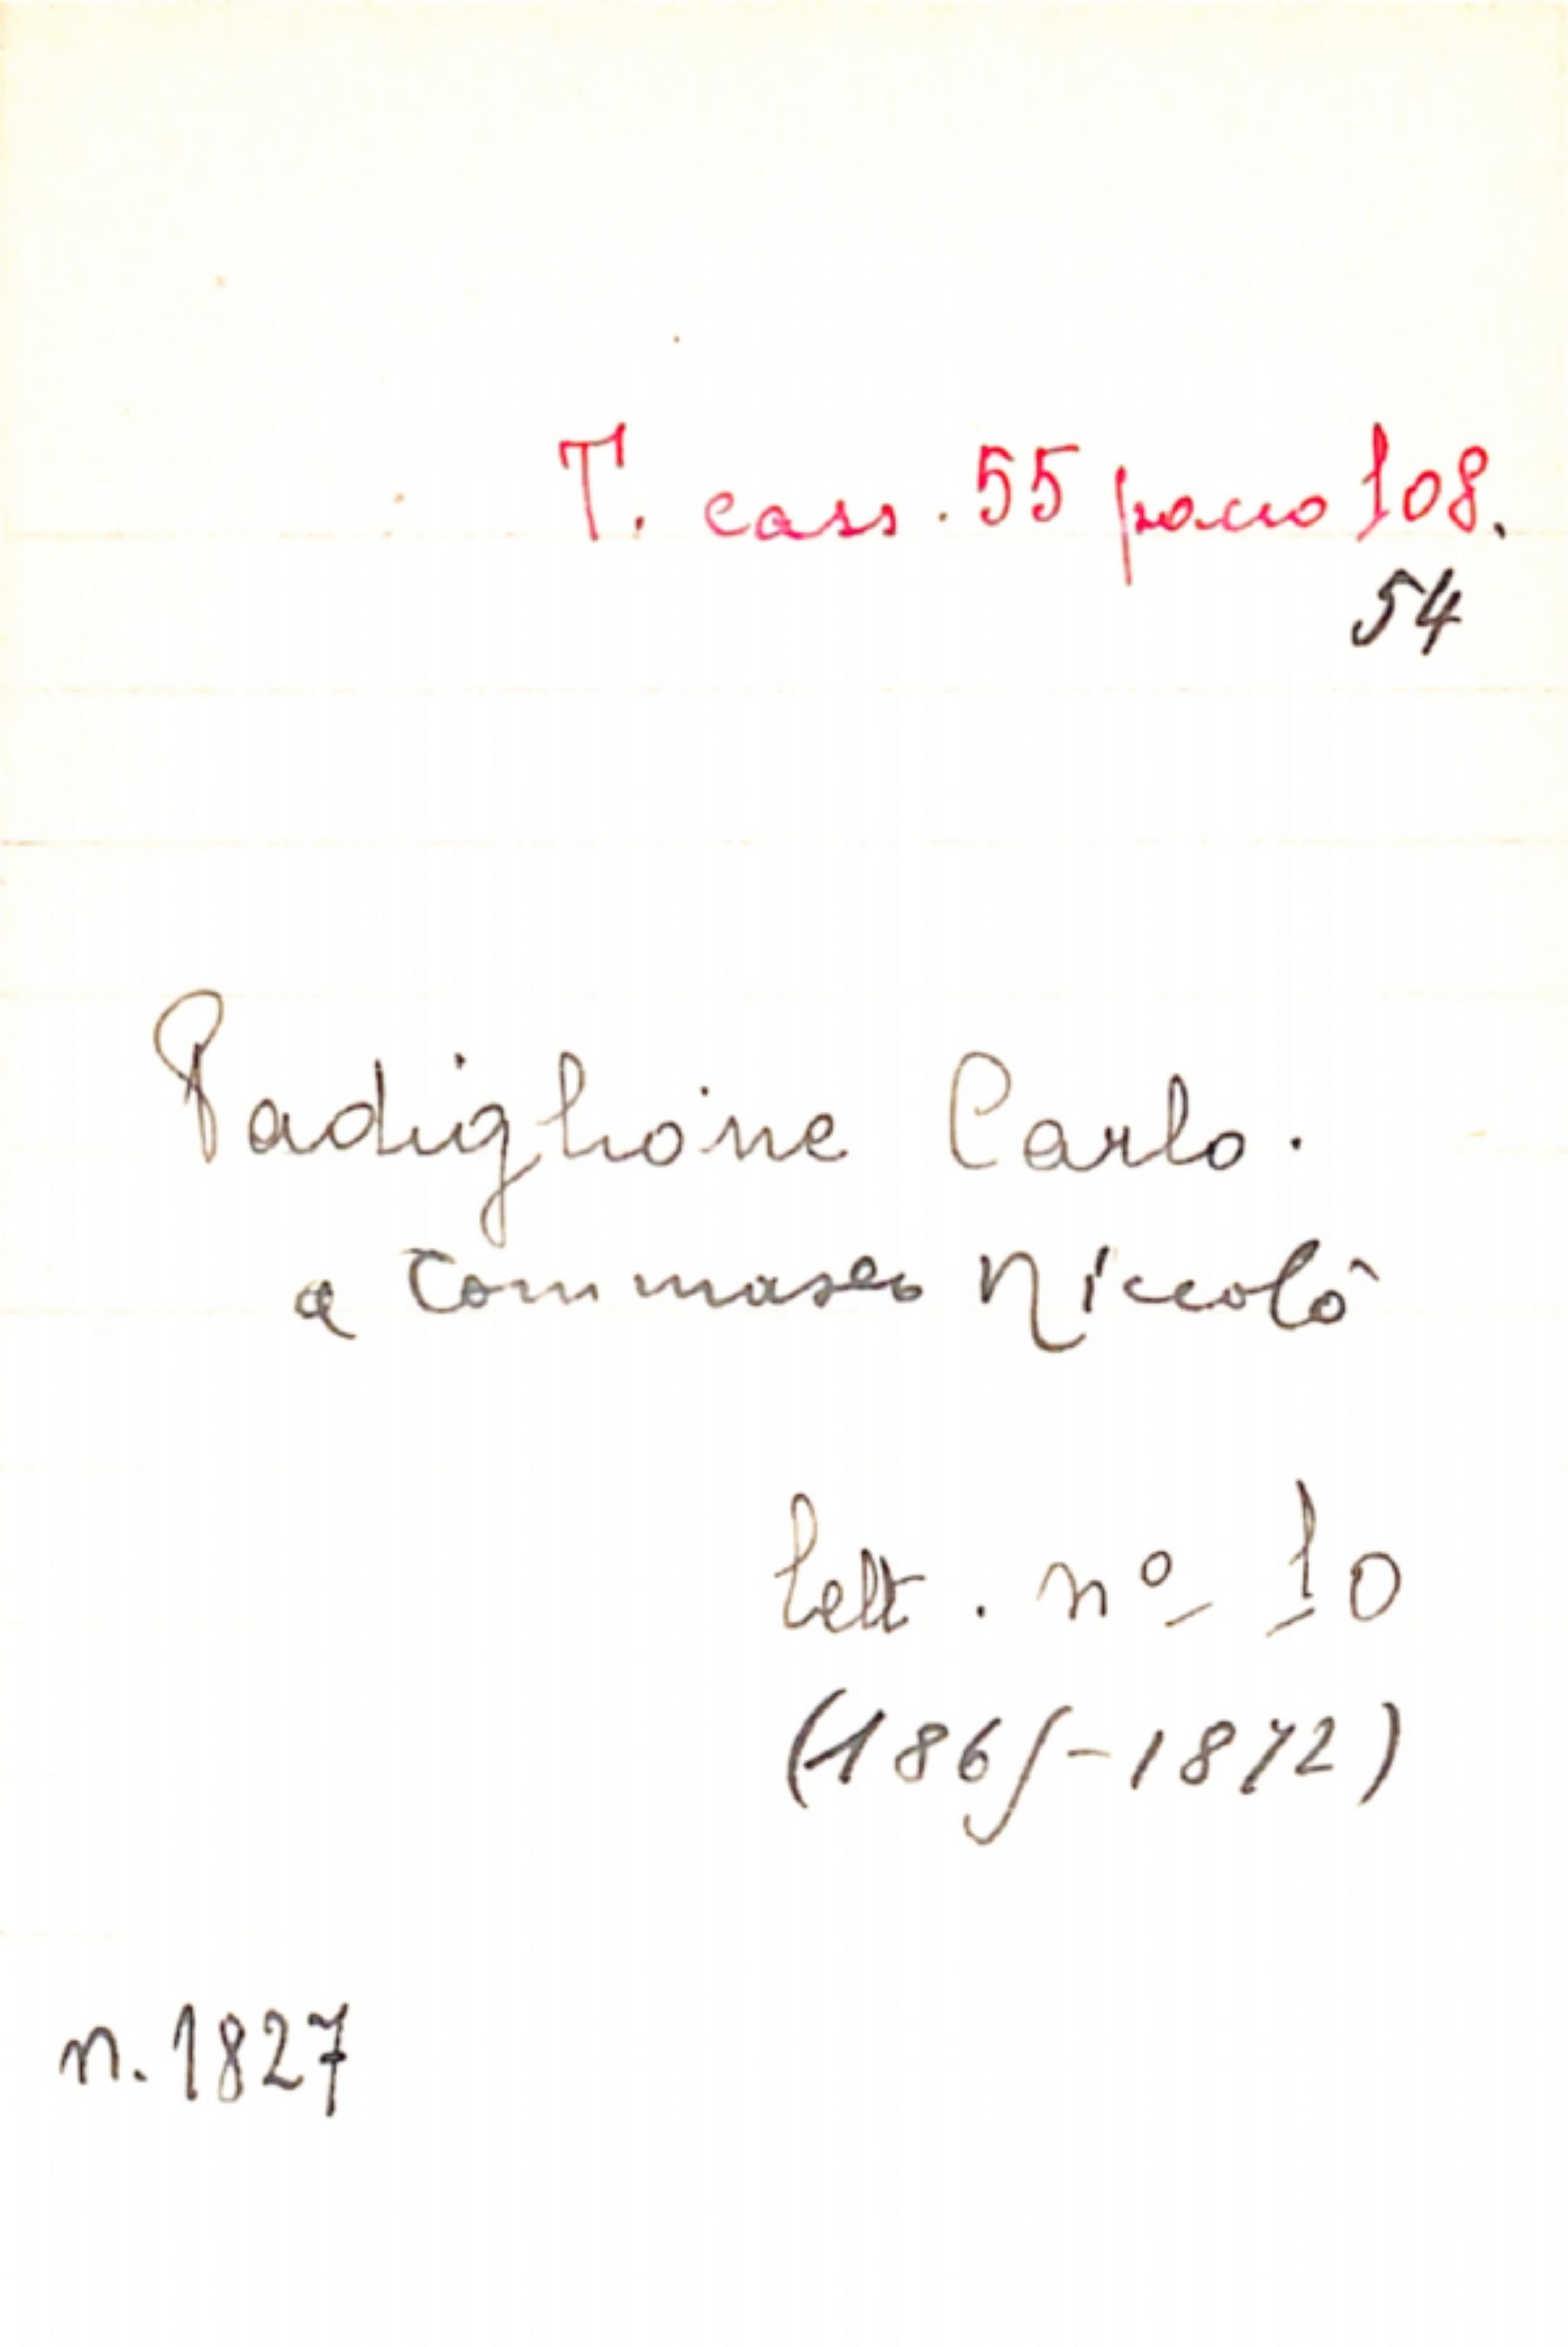 T. cass. 55 pacco 108.
54
Padiglione Carlo.
a Tommaseo Niccolò
lett. nº 10
(1865-1872)
n. 1827